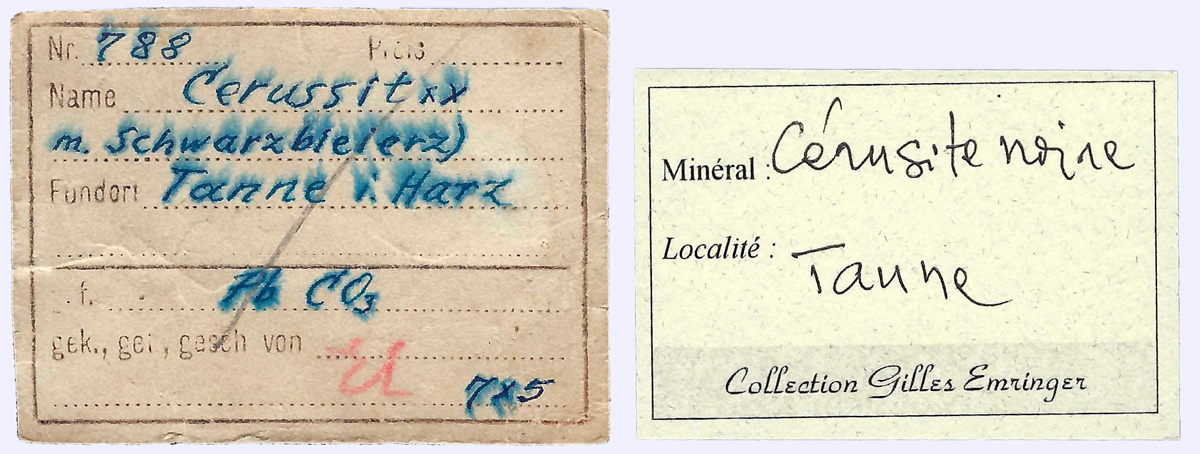 Nr. 788 Preis
Name Cerussit xx
m. Schwarzbleierz)
Fundort Tanne i. Harz
f.
Pb CO3
gek., get., gesch von
785
Minéral : Cérusite noire
Localité : Tanne
Collection Gilles Emringer